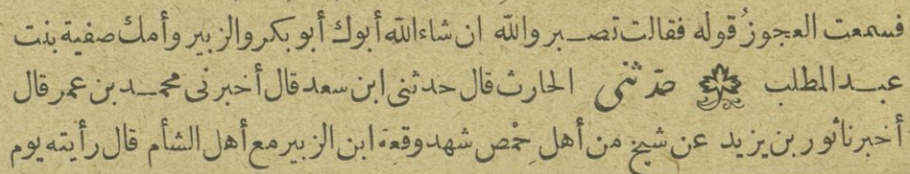 فسمعت العجوزُ قوله فقالت تصـبر والله ان شاء الله أبوك أبو بكر والزبير وأمك صفية بنت
عبـد المطلب حدّثنى الحارث قال حدثنى ابن سعد قال أخبرنى محمـد بن عمر قال
أخبرنا ثور بن يزيد عن شيخ من أهل حِمْص شهد وقعة ابن الزبير مع أهل الشأم قال رأيته يوم